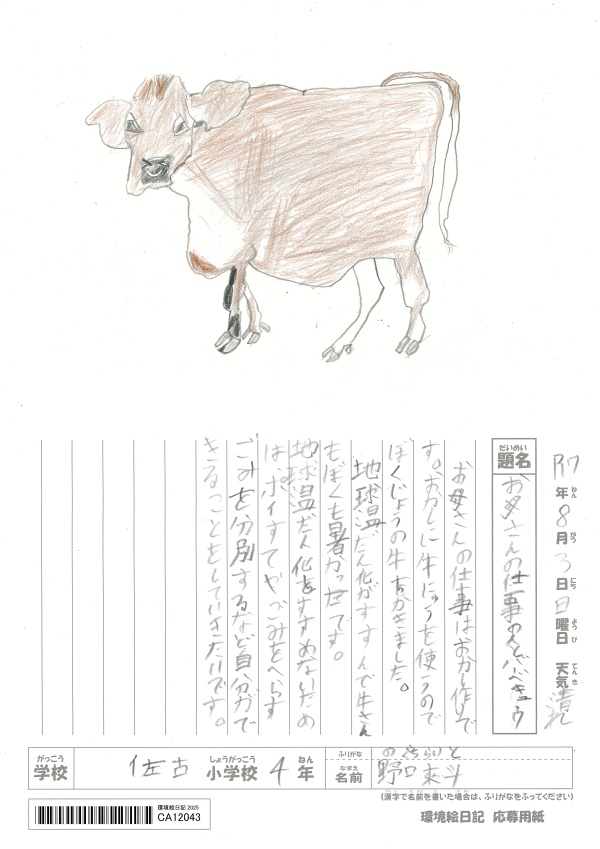 R7年8月3日日曜日 天気晴れ
ねん がつ にち ようび てんき
だいめい
題名
お母さんの仕事の人とバーベキュウ
お母さんの仕事はおかし作りで
す。おかしに牛にゅうを使うので
ぼくじょうの牛をかきました。
地球温だん化がすすんで牛さん
もぼくも暑かったです。
地球温だん化をすすめないため
は、ポイすてや、ごみをへらす
ごみを分別するなど自分がで
きることをしていきたいです。
がっこう しょうがっこう ねん
学校 佐古 小学校 4年
ふりがな のぐちらいと
なまえ
名前 野口来斗
(漢字で名前を書いた場合は、ふりがなをふってください)
環境絵日記 2025
CA12043
環境絵日記 応募用紙